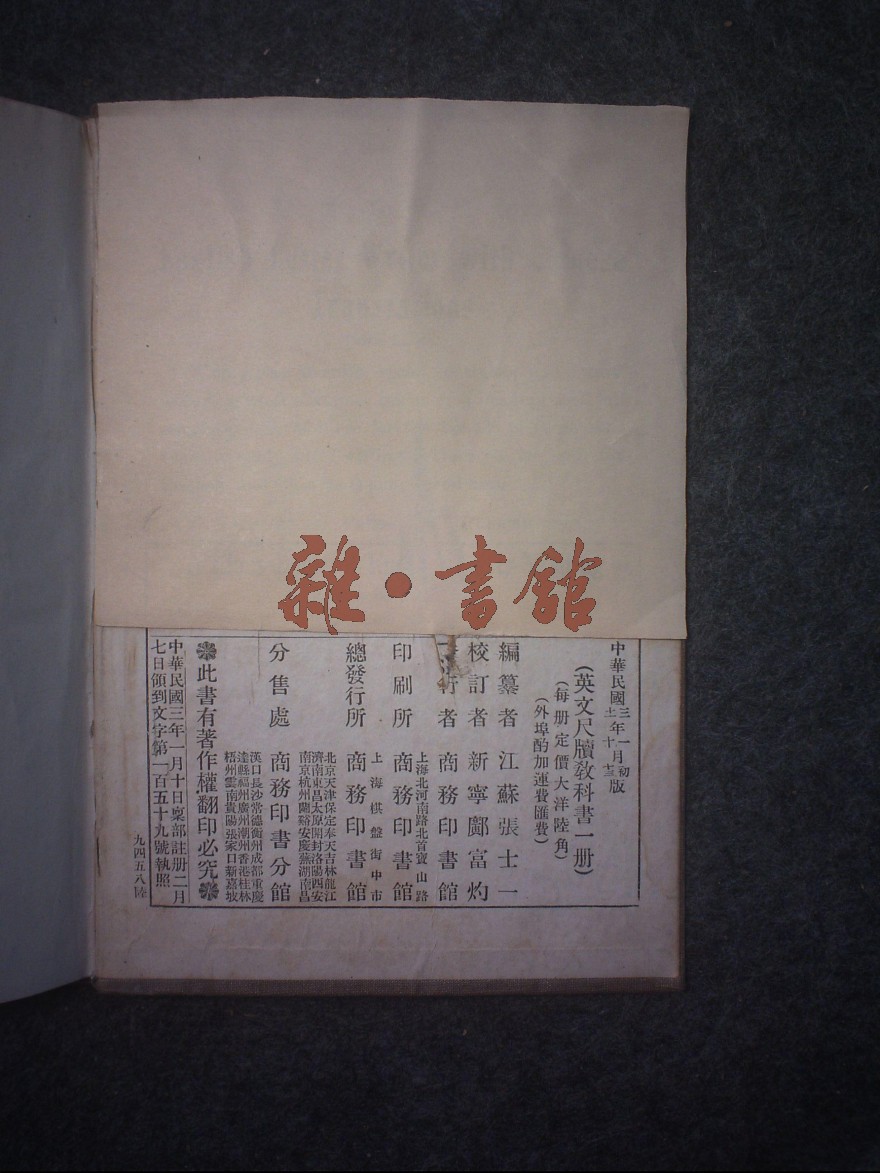 雜·書館
中華民國三年一月初版
(英文尺牘教科書一册)
(每册定價大洋陸角)
(外埠酌加運費匯費)
編纂者 江蘇張士一
校訂者 新寧鄺富灼
行者 商務印書館
上海北河南路北首寶山路
印刷所 商務印書館
上海棋盤街中市
總發行所 商務印書館
北京天津保定奉天吉林龍江
濟南東昌太原開封洛陽西安
南京杭州蘭谿安慶蕪湖南昌
分售處 商務印書分館
漢口長沙常德衡州成都重慶
達縣福州廣州潮州香港桂林
梧州雲南貴陽張家口新嘉坡
此書有著作權翻印必究
中華民國三年一月十日稟部註册二月
七日領到文字第一百五十九號執照
九四五八陸